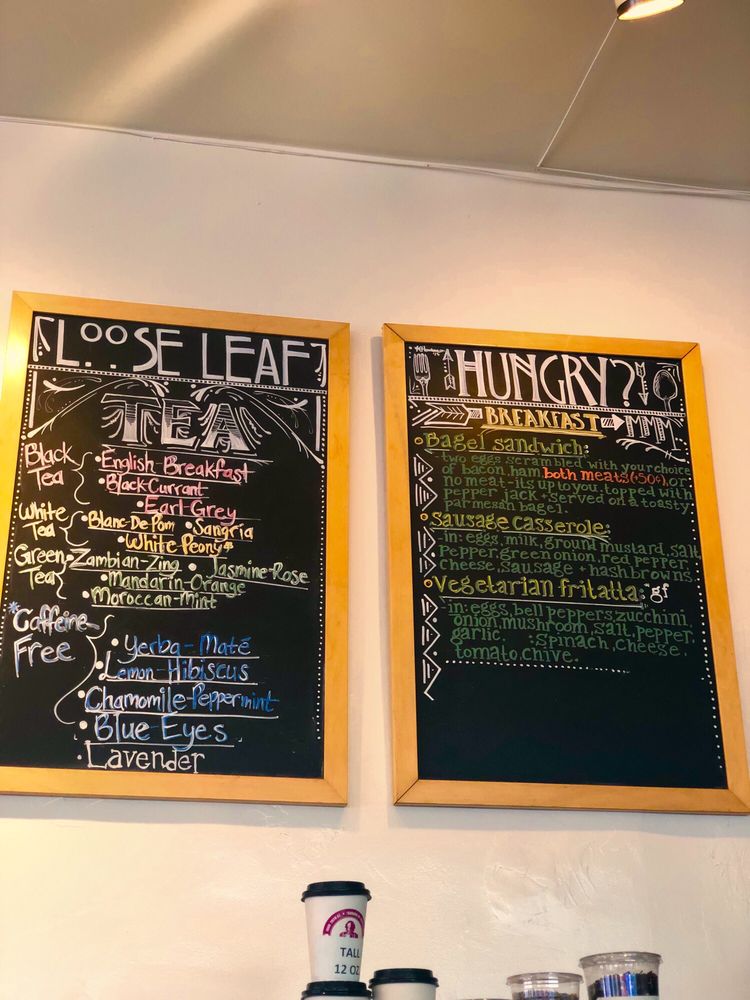 LOOSE LEAF
TEA
Black
Tea
• English Breakfast
• Black Currant
• Earl Grey
White
Tea
• Blanc De Pom • Sangria
• White Peony
Green
Tea
• Zambian-Zing • Jasmine-Rose
• Mandarin-Orange
• Moroccan-Mint
*Caffeine-
Free
• Yerba-Maté
• Lemon-Hibiscus
• Chamomile-Peppermint
• Blue Eyes
• Lavender
HUNGRY?
BREAKFAST MMM
Bagel sandwich:
-two eggs scrambled with your choice
of bacon, ham, both meats (+50¢), or
no meat-its up to you, topped with
pepper jack + served on a toasty
parmesan bagel.
Sausage casserole:
-in: eggs, milk, ground mustard, salt
pepper, green onion, red pepper,
cheese, sausage + hashbrowns
Vegetarian fritatta: *gf
-in: eggs, bell peppers, zucchini,
onion, mushroom, salt, pepper,
garlic. : spinach, cheese,
tomato, chive.
TALL
12 OZ